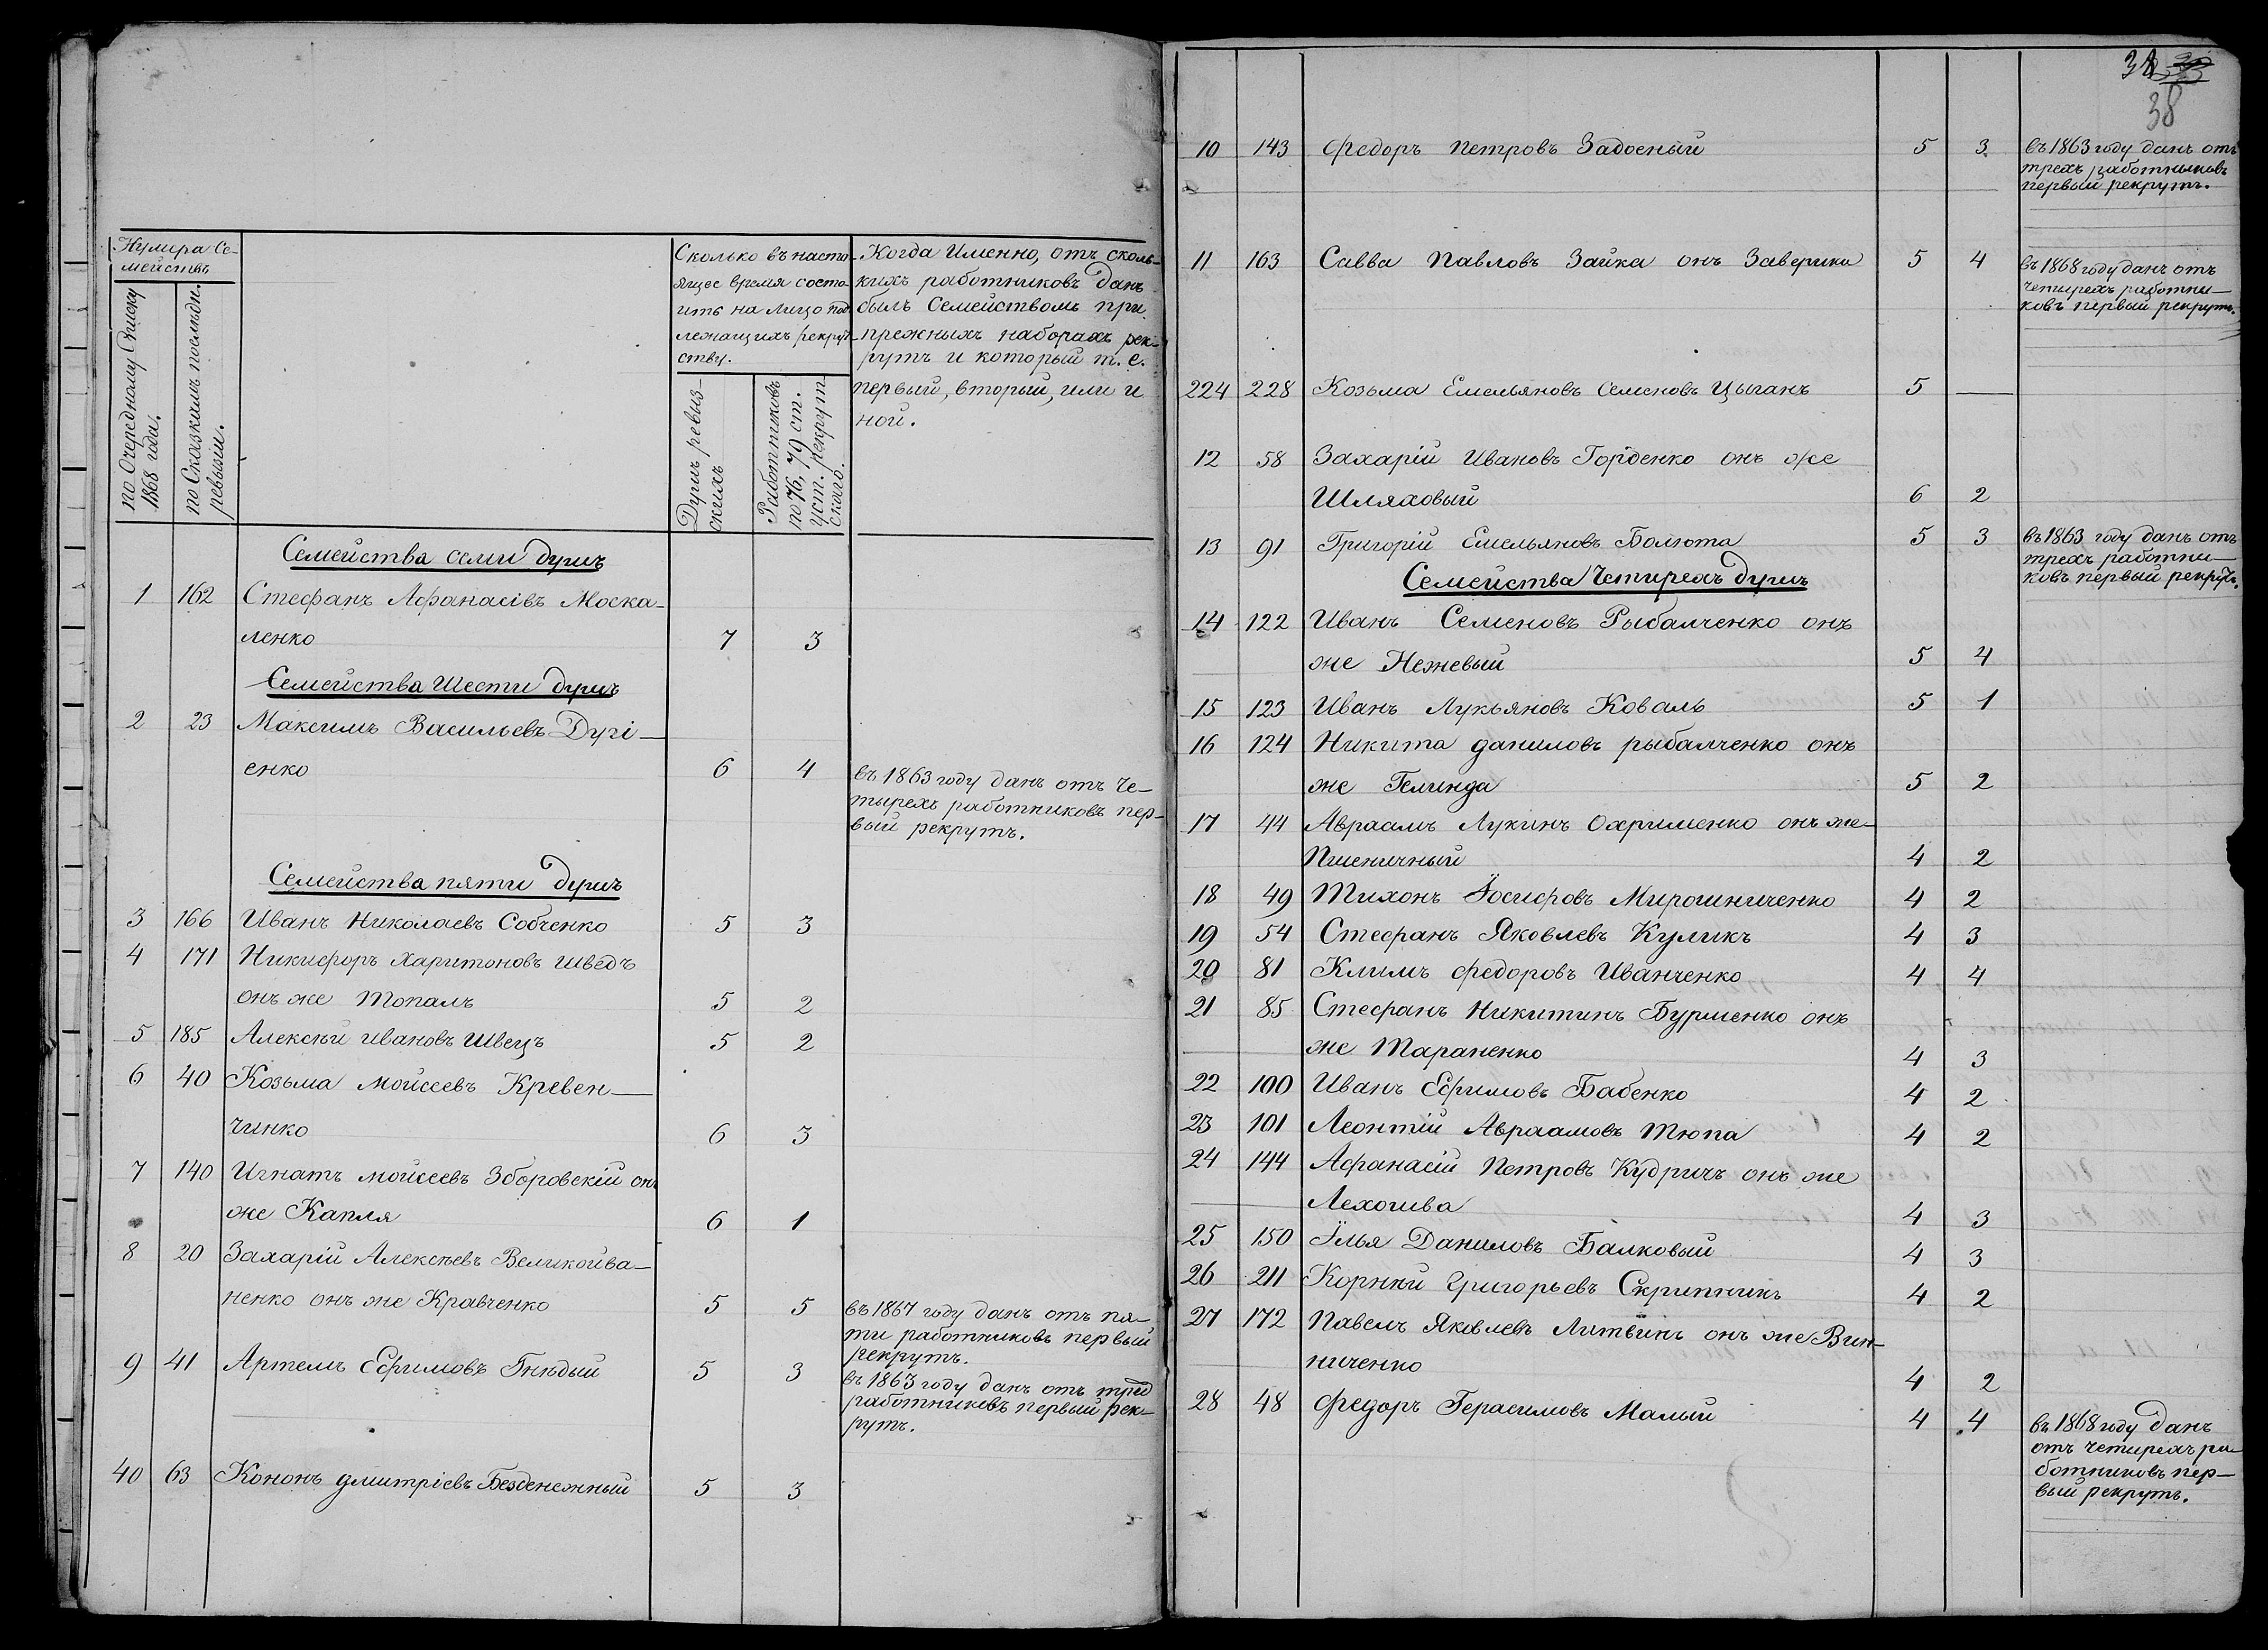 Нумира Се-
мействъ
по Очередному Списку
1868 года.
по Сказкамъ послѣдн.
ревызіи.
Сколько въ насто-
ящее время состо-
итъ на лицо под
лежащихъ рекрут-
ству.
Душъ ревыз-
скихъ
Работниковъ
по 76, 79 ст.
уст. рекрут-
скаго.
Когда Именно, отъ сколь-
кихъ работниковъ данъ
былъ Семействомъ при
прежныхъ наборахъ рек-
рутъ и который т. е.
первый, вторый, или и
ной.
Семейства семи душъ
1 162 Стефанъ Афанасівъ Моска-
ленко 7 3
Семейства Шести душъ
2 23 Максимъ Васильевъ Дугі-
енко 6 4
въ 1863 году данъ отъ Че-
тырехъ работниковъ пер-
вый рекрутъ.
Семейства пяти душъ
3 166 Иванъ Николаевъ Собченко 5 3
4 171 Никифоръ Харитоновъ Шведъ
онъ же Топалъ 5 2
5 185 Алексѣй Ивановъ Швецъ 5 2
6 40 Козьма Мойсеевъ Кревен-
чинко 6 3
7 140 Игнатъ Мойсеевъ Зборовскій онъ
же Капля 6 1
8 20 Захарій Алексѣевъ Великоива-
ненко онъ же Кравченко 5 5
въ 1867 году данъ отъ пя-
ти работниковъ первый
рекрутъ.
9 41 Артемъ Ефимовъ Гнѣдый 5 3
въ 1863 году данъ отъ трех
работниковъ первый рек-
рутъ.
40 63 Кононъ Дмитріевъ Безденежный 5 3
38
10 143 Федоръ Петровъ Задоеный 5 3
въ 1863 году данъ отъ
трехъ работниковъ
первый рекрутъ.
11 163 Савва Павловъ Зайка онъ Заверика 5 4
въ 1868 году данъ отъ
четирехъ работни-
ковъ первый рекрутъ.
224 228 Козьма Емельяновъ Семеновъ Цыганъ 5 —
12 58 Захарій Ивановъ Гордѣенко онъ же
Шляховый 6 2
13 91 Григорій Емельяновъ Болюта 5 3
въ 1863 году данъ отъ
трехъ работни-
ковъ первый рекрутъ.
Семейства Четирехъ душъ
14 122 Иванъ Семеновъ Рыбалченко онъ
же Неживый 5 4
15 123 Иванъ Лукьяновъ Коваль 5 1
16 124 Никита Даниловъ Рыбалченко онъ
же Гелинда 5 2
17 44 Авраамъ Лукинъ Охрименко онъ же-
Пшеничный 4 2
18 49 Тихонъ Йосифовъ Мирошниченко 4 2
19 54 Стефанъ Яковлевъ Куликъ 4 3
20 81 Климъ Федоровъ Иванченко 4 4
21 85 Стефанъ Никитинъ Бурменко онъ
же Тараненко 4 3
22 100 Иванъ Ефимовъ Бабенко 4 2
23 101 Леонтій Авраамовъ Тюпа 4 2
24 144 Афанасій Петровъ Кудричъ онъ же
Лехошва 4 3
25 150 Илья Даниловъ Балковый 4 3
26 211 Корнѣй Григорьевъ Скрипникъ 4 2
27 172 Павелъ Яковлевъ Литвинъ онъ же Вин-
ниченко 4 2
28 48 Федоръ Герасимовъ Малый 4 4
въ 1868 году данъ
отъ четирехъ ра-
ботниковъ пер-
вый рекрутъ.